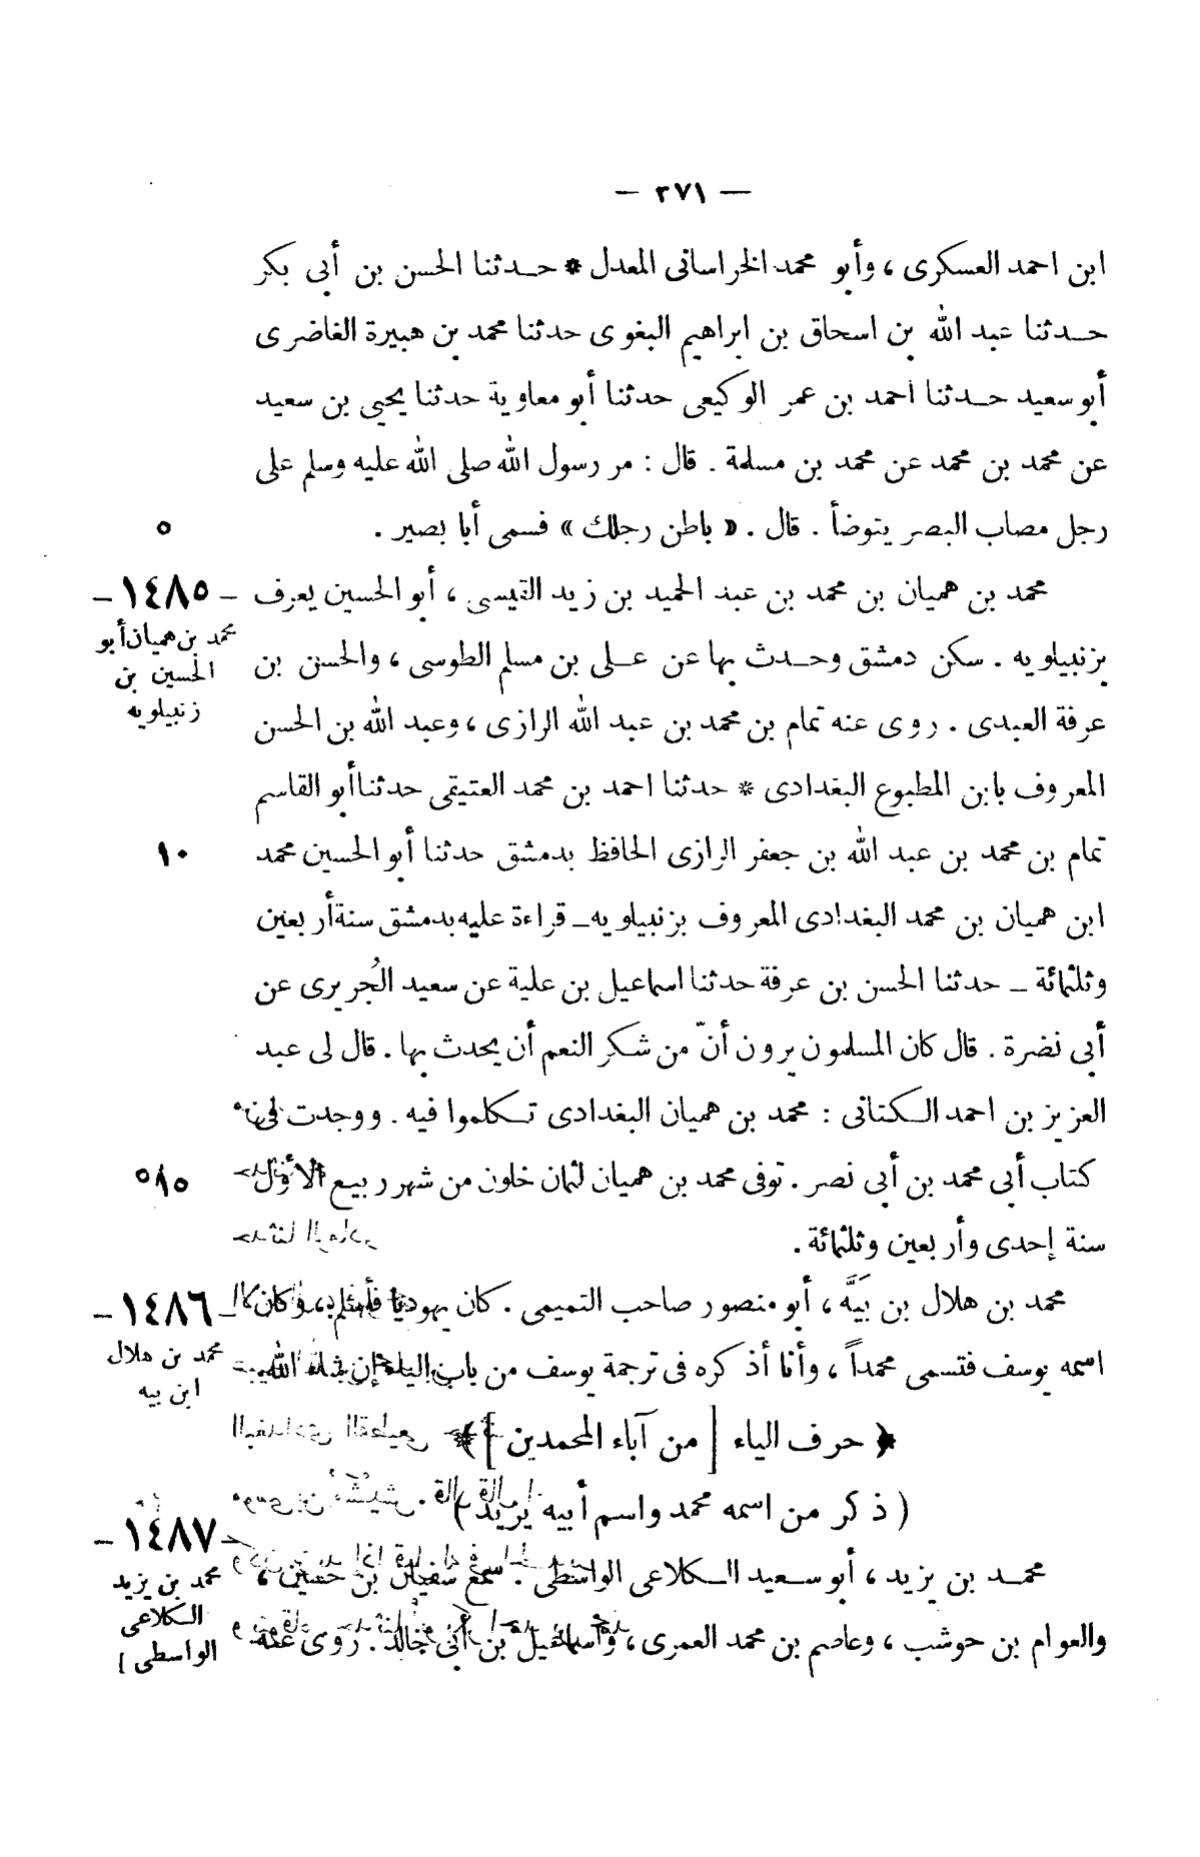 — ٣٧١ —
ابن احمد العسكرى ، وأبو محمد الخراسانى المعدل * حـدثنا الحسن بن أبى بكر
حـدثنا عبد الله بن اسحاق بن ابراهيم البغوى حدثنا محمد بن هبيرة الغاضرى
أبو سعيد حـدثنا احمد بن عمر الوكيعى حدثنا أبو معاوية حدثنا يحيى بن سعيد
عن محمد بن محمد عن محمد بن مسلمة . قال : مر رسول الله صلى الله عليه وسلم على
رجل مصاب البصر يتوضأ . قال . « باطن رجلك » فسمى أبا بصير . ٥
محمد بن هميان بن محمد بن عبد الحميد بن زيد القيسى ، أبو الحسين يعرف
– ١٤٨٥ –
محمد بن هميان أبو
الحسين بن
زنبيلويه
بزنبيلويه . سكن دمشق وحـدث بها عن عـلى بن مسلم الطوسى ، والحسن بن
عرفة العبدى . روى عنه تمام بن محمد بن عبد الله الرازى ، وعبد الله بن الحسن
المعروف بابن المطبوع البغدادى * حدثنا احمد بن محمد العتيقى حدثنا أبو القاسم
تمام بن محمد بن عبد الله بن جعفر الرازى الحافظ بدمشق حدثنا أبو الحسين محمد ١٠
ابن هميان بن محمد البغدادى المعروف بزنبيلويه – قراءة عليه بدمشق سنة أربعين
وثلثمائة – حدثنا الحسن بن عرفة حدثنا اسماعيل بن علية عن سعيد الجُريرى عن
أبى نضرة . قال كان المسلمون يرون أنّ من شكر النعم أن يحدث بها . قال لى عبد
العزيز بن احمد الـكتانى : محمد بن هميان البغدادى تـكلموا فيه . ووجدت فى
كتاب أبى محمد بن أبى نصر . توفى محمد بن هميان لثمان خلون من شهر ربيع الأول ١٥
سنة إحدى وأربعين وثلثمائة .
محمد بن هلال بن بَيَّه ، أبو منصور صاحب التميمى . كان يهوديا فأسلم ، وكان
– ١٤٨٦ –
محمد بن هلال
ابن بيه
اسمه يوسف فتسمى محمداً ، وأنا أذكره فى ترجمة يوسف من باب الياء إن شاء الله
﴿ حرف الياء [ من آباء المحمدين ] ﴾
( ذكر من اسمه محمد واسم أبيه يزيد )
محمـد بن يزيد ، أبو سـعيد الـكلاعى الواسطى . سمع سفيان بن حسين ،
– ١٤٨٧ –
محمد بن يزيد
الـكلاعى
الواسطى ]
والعوام بن حوشب ، وعاصم بن محمد العمرى ، واسماعيل بن أبى خالد . روى عنه